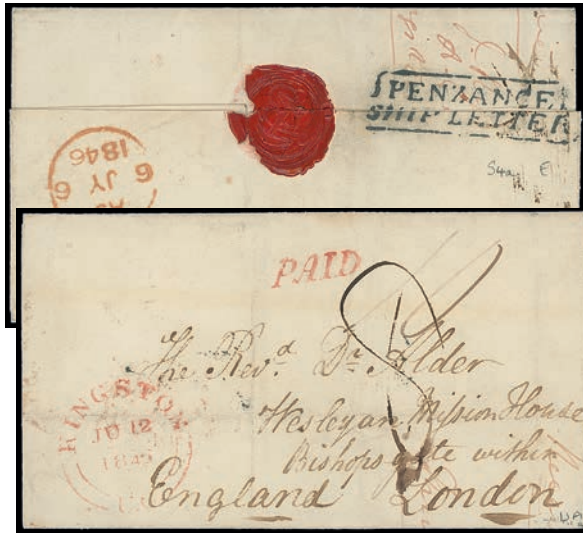 PENZANCE
SHIP LETTER
6
JY 6
1846
S4a E
PAID
8
The Revd. Dr. Alder
Wesleyan Mission House
Bishopsgate within
England London
KINGSTON
JU 12